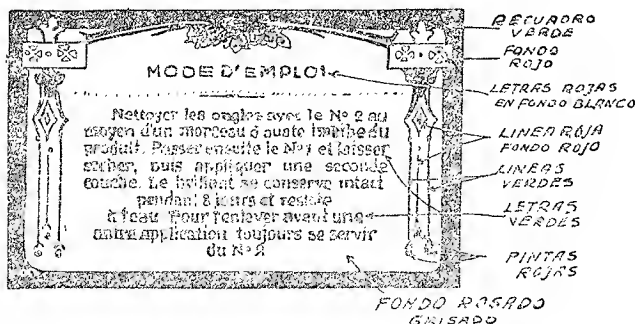 MODE D'EMPLOI
Nettoyer les ongles avec le Nº 2 au
moyen d'un morceau d'ouate imbibé du
produit. Passer ensuite le Nº 1 et laisser
sécher, puis appliquer une seconde
couche. Le brillant se conserve intact
pendant 8 jours et resiste
à l'eau. Pour l'enlever avant une
autre application toujours se servir
du Nº 2
RECUADRO
VERDE
FONDO
ROJO
LETRAS ROJAS
EN FONDO BLANCO
LINEA ROJA
FONDO ROJO
LINEAS
VERDES
LETRAS
VERDES
PINTAS
ROJAS
FONDO ROSADO
GRISADO